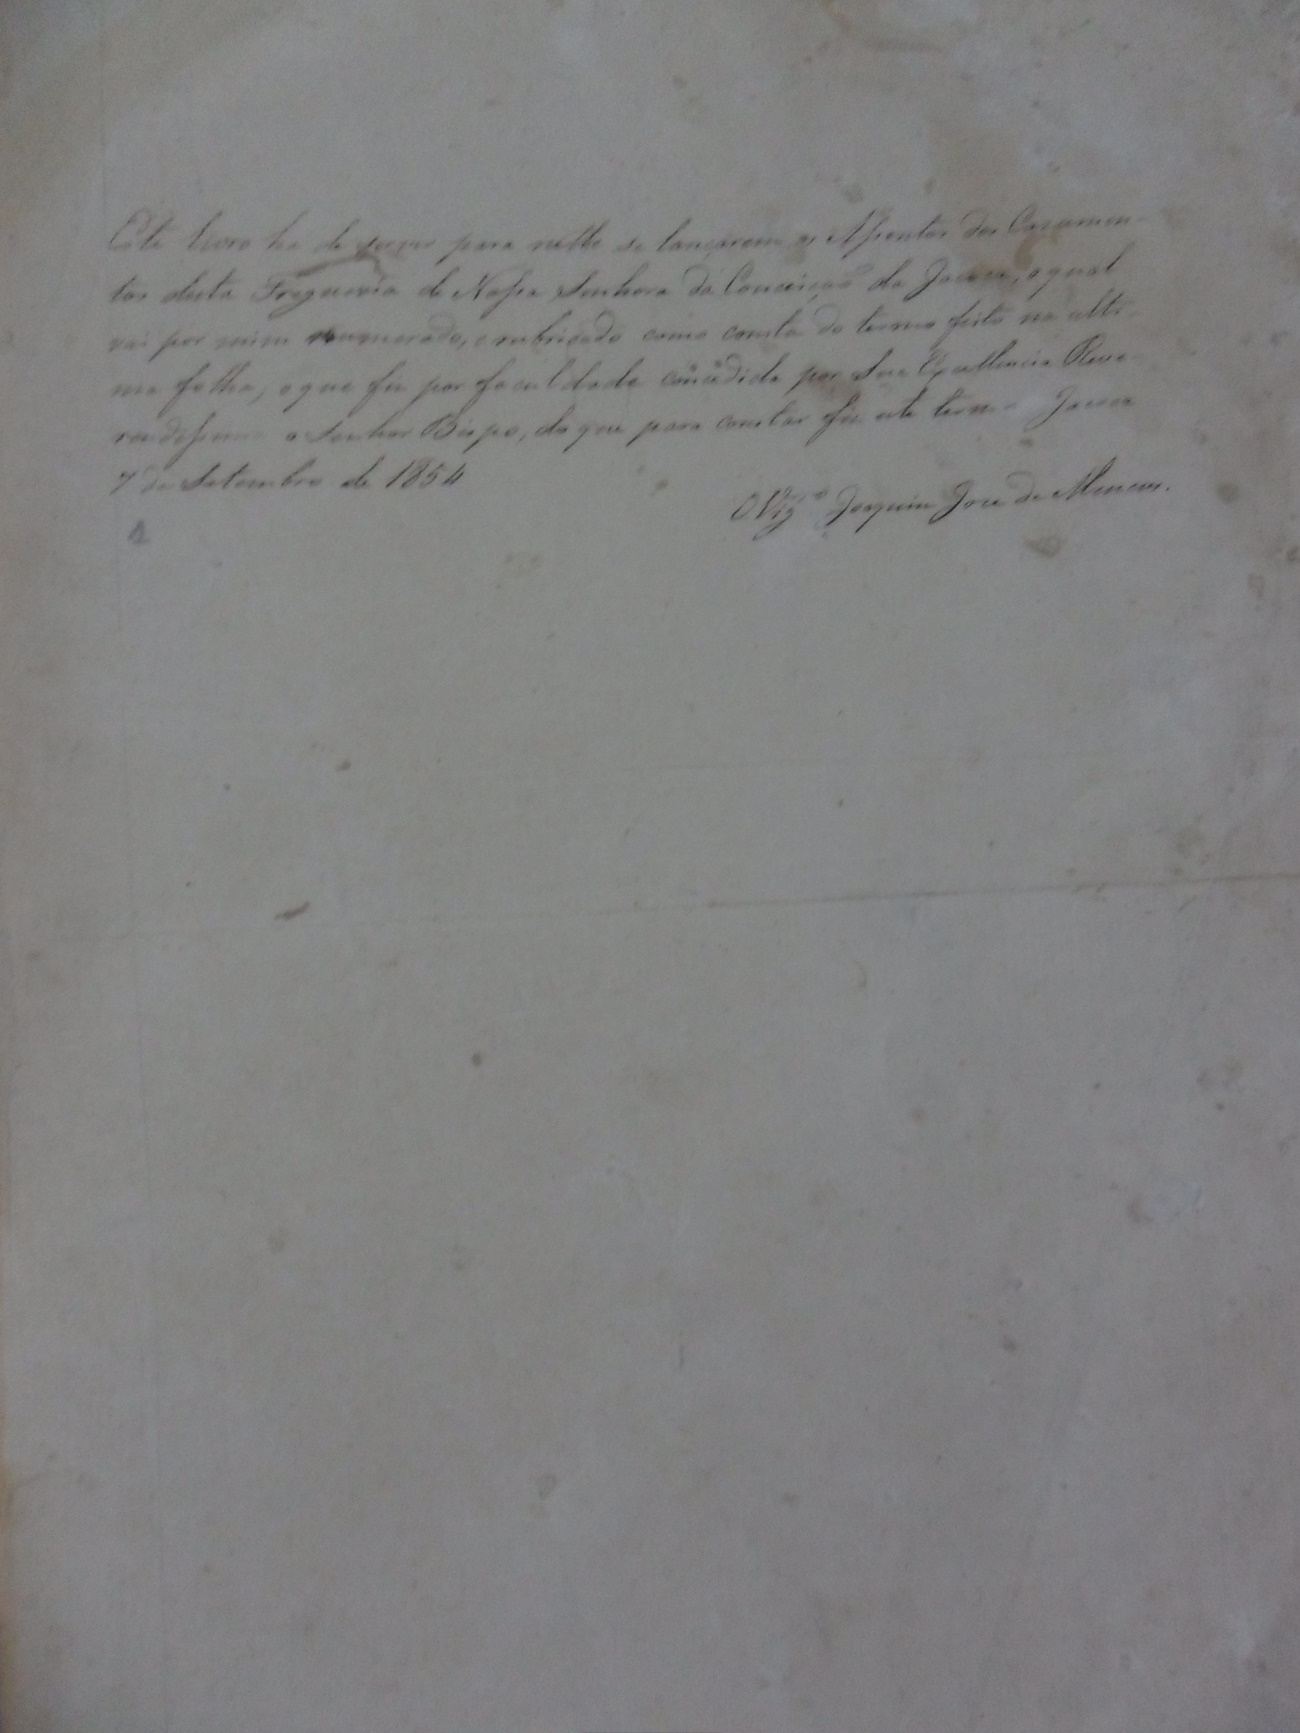 Este livro ha de servir para nelle se lançarem os Assentos dos Casamen-
tos desta Freguesia de Nossa Senhora da Conceição da Jacoca, o qual
vai por mim numerado, e rubricado como consta do termo feito na ulti-
ma folha, o que fiz por faculdade concedida por Sua Excellencia Reve-
rendissima o Senhor Bispo, do que para constar fiz este termo. Jacoca
7 de Setembro de 1854
O Vigº Joaquim Jose de
1